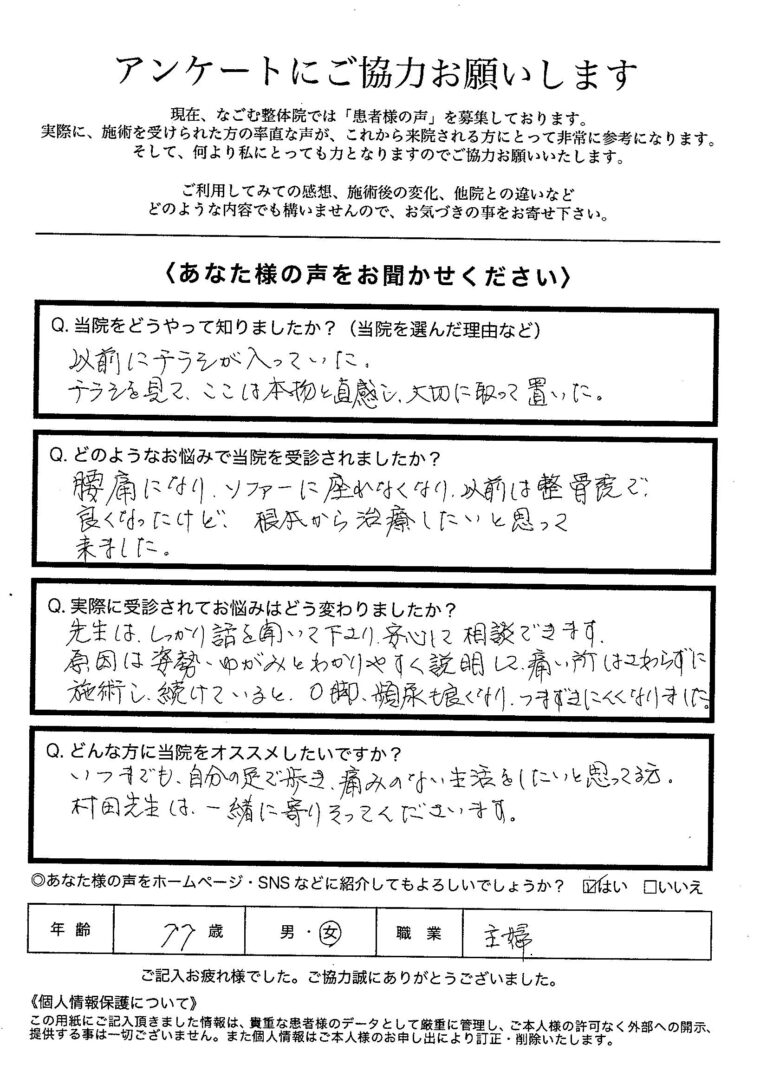 アンケートにご協力お願いします
現在、なごむ整体院では「患者様の声」を募集しております。
実際に、施術を受けられた方の率直な声が、これから来院される方にとって非常に参考になります。
そして、何より私にとっても力となりますのでご協力お願いいたします。
ご利用してみての感想、施術後の変化、他院との違いなど
どのような内容でも構いませんので、お気づきの事をお寄せ下さい。
〈あなた様の声をお聞かせください〉
Q. 当院をどうやって知りましたか？（当院を選んだ理由など）
以前にチラシが入っていた。
チラシを見て、ここは本物と直感し、大切に取って置いた。
Q. どのようなお悩みで当院を受診されましたか？
腰痛になり、ソファーに座れなくなり、以前は整骨院で、
良くなったけど、根本から治療したいと思って
来ました。
Q. 実際に受診されてお悩みはどう変わりましたか？
先生は、しっかり話を聞いて下さり、安心して相談できます。
原因は姿勢・ゆがみとわかりやすく説明して、痛い所はさわらずに
施術し、続けていると、O脚、頻尿も良くなり、つまずきにくくなりました。
Q. どんな方に当院をオススメしたいですか？
いつまでも、自分の足で歩き、痛みのない生活をしたいと思ってる方。
村田先生は、一緒に寄りそってくださいます。
◎あなた様の声をホームページ・SNSなどに紹介してもよろしいでしょうか？ ☑はい □いいえ
年齢 77歳 男・女 職業 主婦
ご記入お疲れ様でした。ご協力誠にありがとうございました。
《個人情報保護について》
この用紙にご記入頂きました情報は、貴重な患者様のデータとして厳重に管理し、ご本人様の許可なく外部への開示、
提供する事は一切ございません。また個人情報はご本人様のお申し出により訂正・削除いたします。